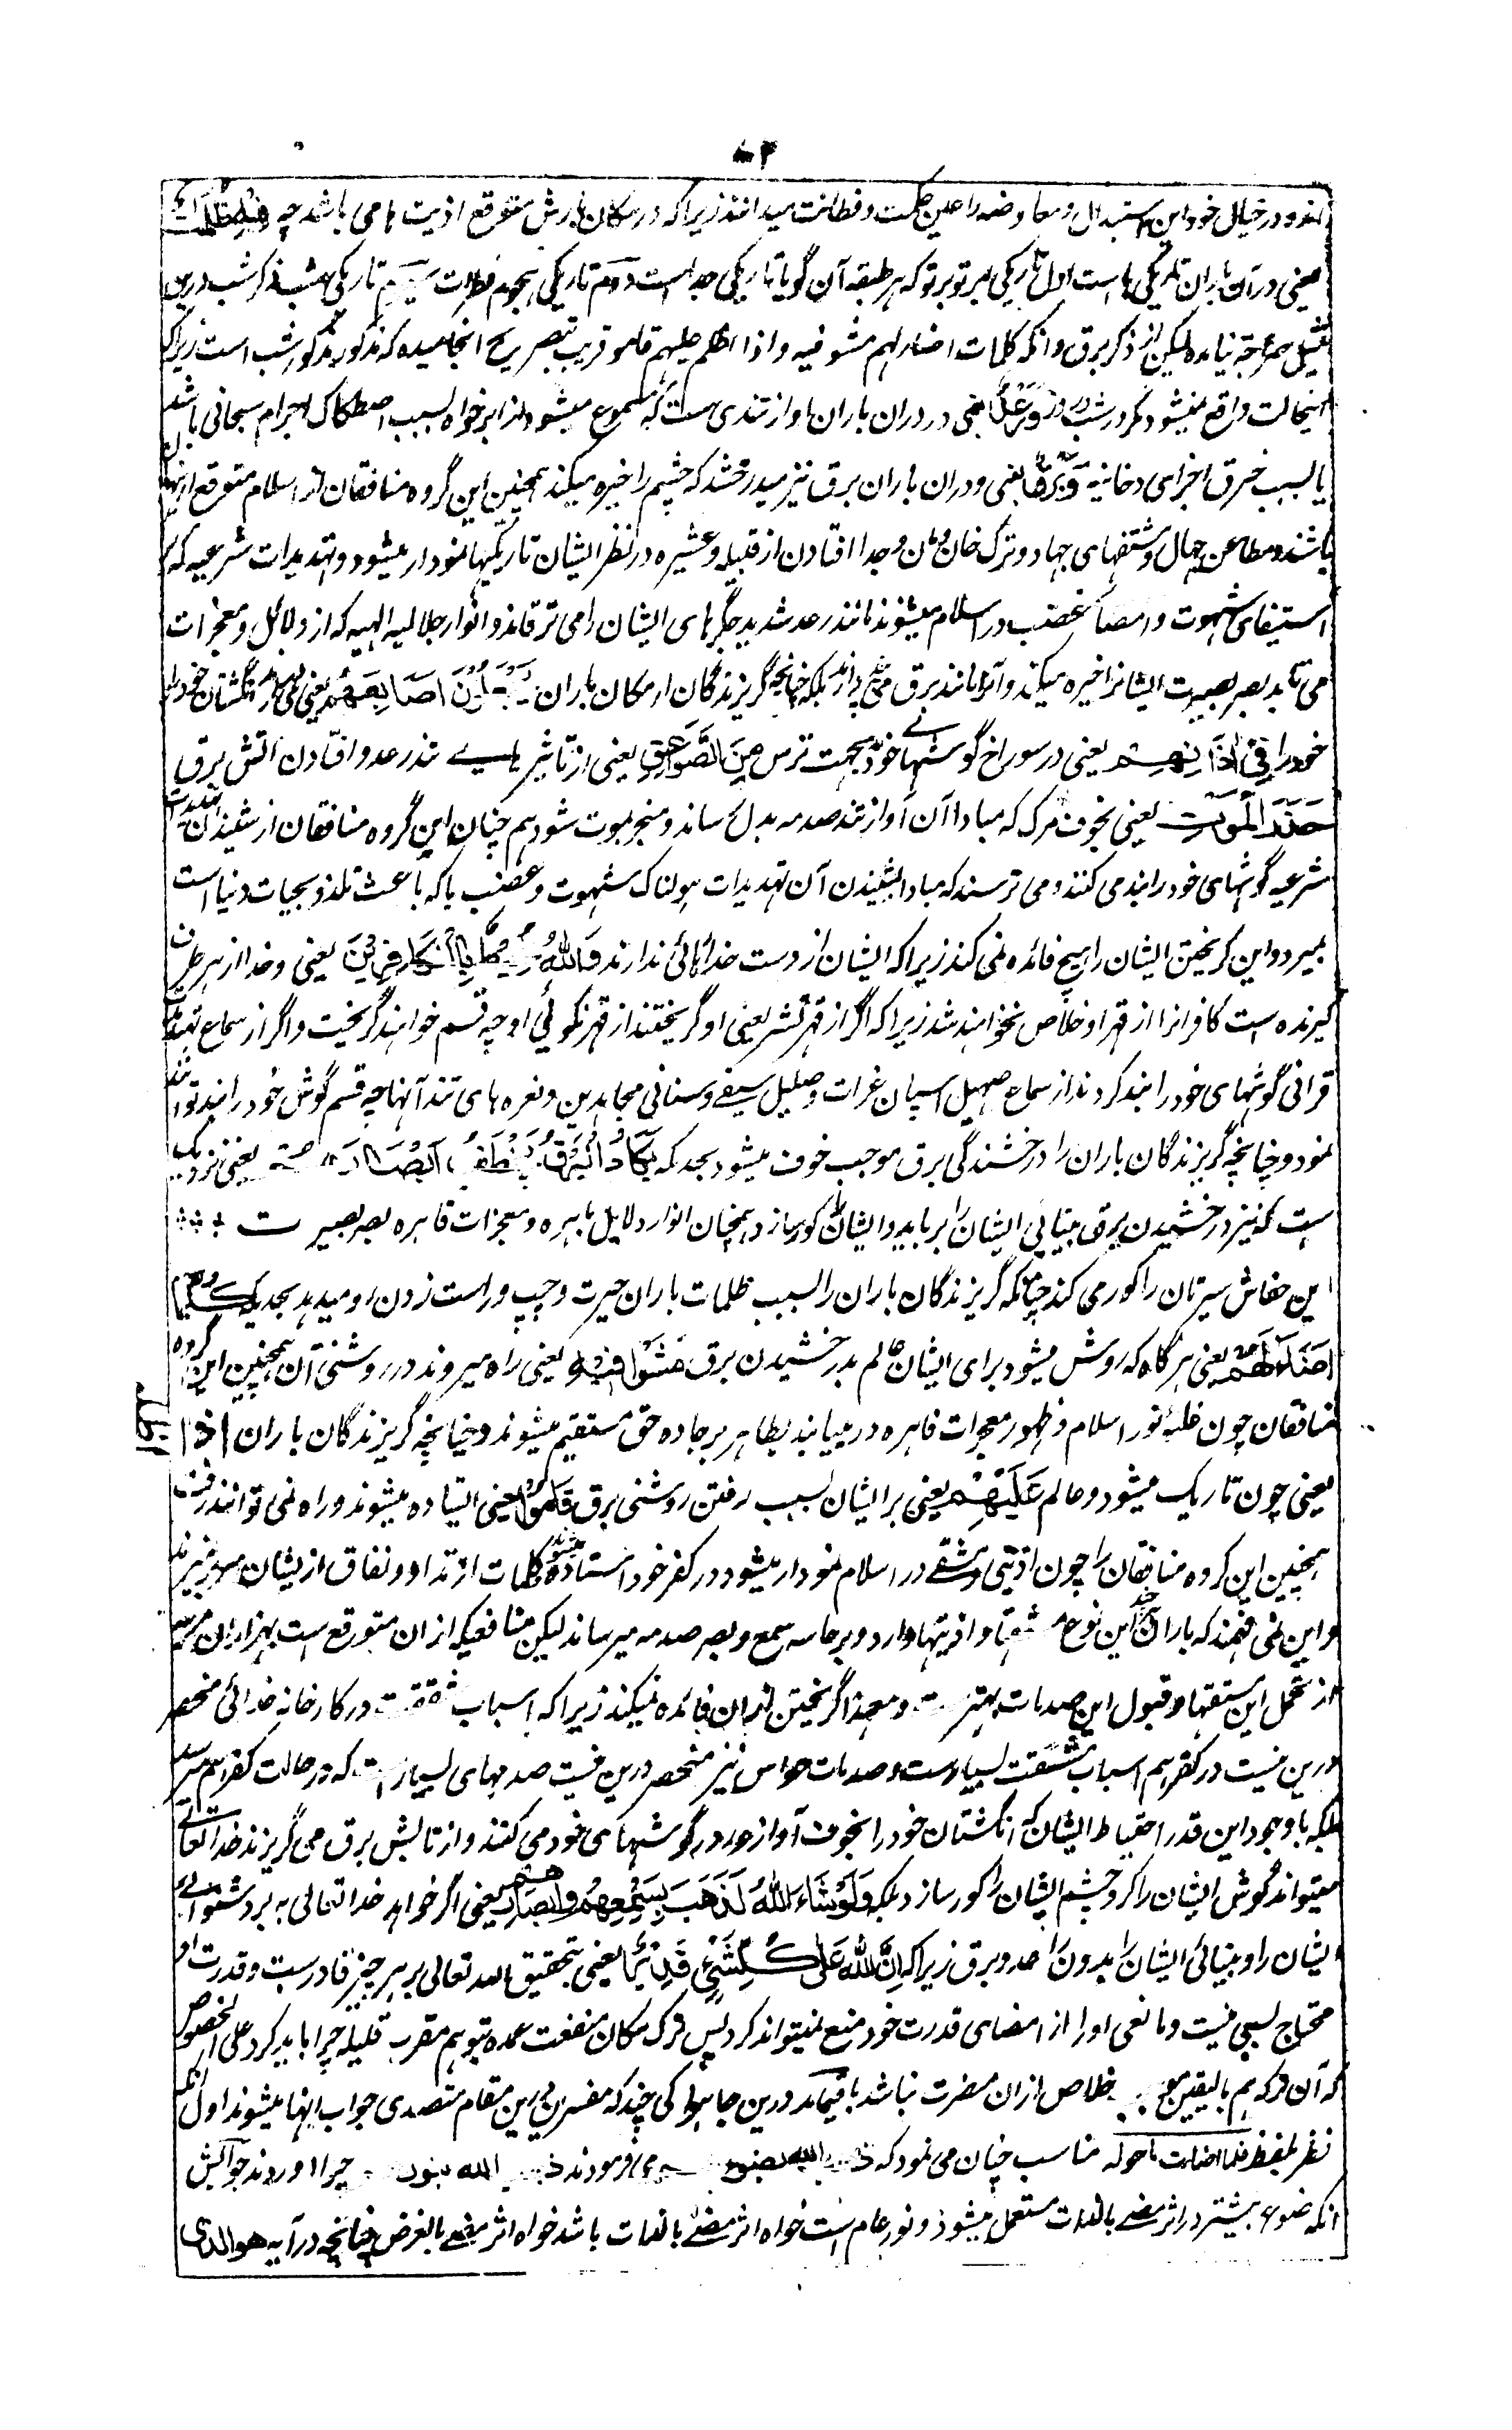 نمود و در خیال خود این استبدال و معاوضه را عین حکمت و فطانت میدانند زیرا که در مکان بارش متوقع اذیت ها می باشد چه فِیهِ ظُلُمَاتٌ
یعنی در آن باران تاریکی ها است اول تاریکی ابر تو بر تو که هر طبقه آن گویا تاریکی جداست دوم تاریکی هجوم قطرات سیوم تاریکی شب ذکر شب درین
تمثیل صراحة نیامده لیکن از ذکر برق و آنکه کلمات اضاء لهم مشوا فیه و اذا اظلم علیهم قاموا قریب بتصریح انجامیده که مذکور شب است زیرا که
اینحالت واقع نمیشود مگر در شب وَرَعْدٌ یعنی در دران باران آواز تندی هست که مسموع میشود از ابر خواه بسبب اصطکاک اجرام سحابی باشد
یا بسبب خرق اجزای دخانیه وَبَرْقٌ یعنی و دران باران برق نیز میدرخشد که چشم را خیره میکند همچنین این گروه منافقان از اسلام متوقع
باشند و مطاعن جهال و مشقتهای جهاد و ترک خان و مان و جدا افتادن از قبیله و عشیره در نظر ایشان تاریکیها نمودار میشود و تهدیدات شرعیه که
استیفای شهوت و امضاء غضب در اسلام میشوند مانند رعد شدید جگرهای ایشان را می ترقاند و انوار جلالیه الهیه که از دلائل و معجزات
می تابد بصر بصیرت ایشانرا خیره میکند و آنرا مانند برق می پندارند بلکه چنانچه گریزندگان از مکان باران یَجْعَلُونَ اَصَابِعَهُمْ یعنی می انگشتان خود را
خود را فِیْ اٰذَانِهِمْ یعنی در سوراخ گوشهای خود بجهت ترس مِنَ الصَّوَاعِقِ یعنی از تاثیر های تندر عد و افتادن آتش برق
حَذَرَ الْمَوْتِ یعنی بخوف مرگ که مبادا آن آواز تند صدمه بدل رساند و منجر بموت شود هم چنان این گروه منافقان از شنیدن تهدیدات
شرعیه گوشهای خود را بند می کنند و می ترسند که مبادا بشنیدن آن تهدیدات هولناک شهوت و غضب ما که باعث تلذذ بحیات دنیا است
بمیرد و این گریختن ایشان را هیچ فائده نمی کند زیرا که ایشان از دست خدا رهائی ندارند وَاللّٰهُ مُحِیْطٌ بِالْکَافِرِیْنَ یعنی و خدا از هر طرف
گیرنده است کافرانرا از قهر او خلاص نخواهند شد زیرا که اگر از قهر تشریعی او گریختند از قهر تکوینی او چه قسم خواهند گریخت و اگر از سماع تهدیدات
قرانی گوشهای خود را بند کردند از سماع صهیل اسپان غزات و صلیل سیفی و سنانی مجاهدین و نعره های تند آنها چه قسم گوش خود را بند توانند
نمود و چنانچه گریزندگان باران را درخشندگی برق موجب خوف میشود بحدیکه یَکَادُ الْبَرْقُ یَخْطَفُ اَبْصَارَهُمْ یعنی نزدیک
است که نیز درخشیدن برق بینائی ایشان را برباید و ایشان را کور سازد همچنان انوار دلایل باهره و معجزات قاهره بصر بصیرت
این خفاش سیرتان را کور می کند چنانکه گریزندگان باران را بسبب ظلمات باران حیرت و چپ و راست زدن رو میدهد بحدیکه کُلَّمَا
اَضَاءَ لَهُمْ یعنی هر گاه که روشن میشود برای ایشان عالم بدرخشیدن برق مَشَوْا فِیْهِ یعنی راه میروند در روشنی آن همچنین این گروه
منافقان چون غلبه نور اسلام و ظهور معجزات قاهره در مییابند بظاهر بر جاده حق مستقیم میشوند و چنانچه گریزندگان باران وَاِذَا
اظلم
یعنی چون تاریک میشود و عالم عَلَیْهِمْ یعنی بر ایشان بسبب رفتن روشنی برق قَامُوْا یعنی ایستاده میشوند و راه نمی توانند رفت
همچنین این گروه منافقان را چون اذیتی و مشقتی در اسلام نمودار میشود در کفر خود استاده میشوند و کلمات ارتداد و نفاق از ایشان
و این نمی فهمند که باران هر چند این نوع مشقتها و اذیتها دارد و بر حاسه سمع و بصر صدمه میرساند لیکن منافعیکه ازان متوقع است بهزاران مرتبه
از تحمل این مشقتها و قبول این صدمات بهتر ست و معهذا گریختن ازان فائده نمیکند زیرا که اسباب مشقت در کارخانه خدائی منحصر
درین نیست در کفر هم اسباب مشقت بسیار است و صدمات حواس نیز منحصر درین نیست صدمهای بسیار است که در حالت کفر هم میرسد
بلکه با وجود این قدر احتیاط ایشان که انگشتان خود را بخوف آواز رعد در گوشهای خود می کنند و از تابش برق می گریزند خدا تعالی
میتواند گوش ایشان را کر و چشم ایشان را کور سازد بلکه وَلَوْ شَاءَ اللّٰهُ لَذَهَبَ بِسَمْعِهِمْ وَاَبْصَارِهِمْ یعنی اگر خواهد خدا تعالی به برد شنوائی
ایشان را و بینائی ایشان را بدون رعد و برق زیرا که اِنَّ اللّٰهَ عَلٰی کُلِّ شَیْءٍ قَدِیْرٌ یعنی بتحقیق الله تعالی بر هر چیز قادر ست و قدرت او
محتاج سببی نیست و مانعی او را از امضای قدرت خود منع نمیتواند کرد پس ترک مکان منفعت عمده بتوهم مضرت قلیله چرا باید کرد علی الخصوص
که آن ترک هم بالیقین خلاص ازان مضرت نباشد باقیماند درین جا سوالی چند که مفسرین درین مقام متصدی جواب آنها میشوند اول آنکه
نظر بلفظ فلما اضاءت ما حوله مناسب چنان می نمود که ذهب الله بضوءهم می فرمودند ذهب الله بنورهم چرا آوردند جوابش
آنکه ضوء بیشتر در اثر مضئ بالذات مستعمل میشود و نور عام است خواه اثر مضئ بالذات باشد خواه اثر مضئ بالعرض چنانچه در آیه هو الذی